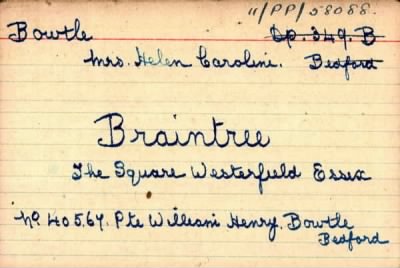 11/PP/58088.
Bowtle Dp. 349. B
Mrs. Helen Caroline. Bedford
Braintree
The Square Westerfield Essex
No. 40567. Pte William Henry. Bowtle
Bedford